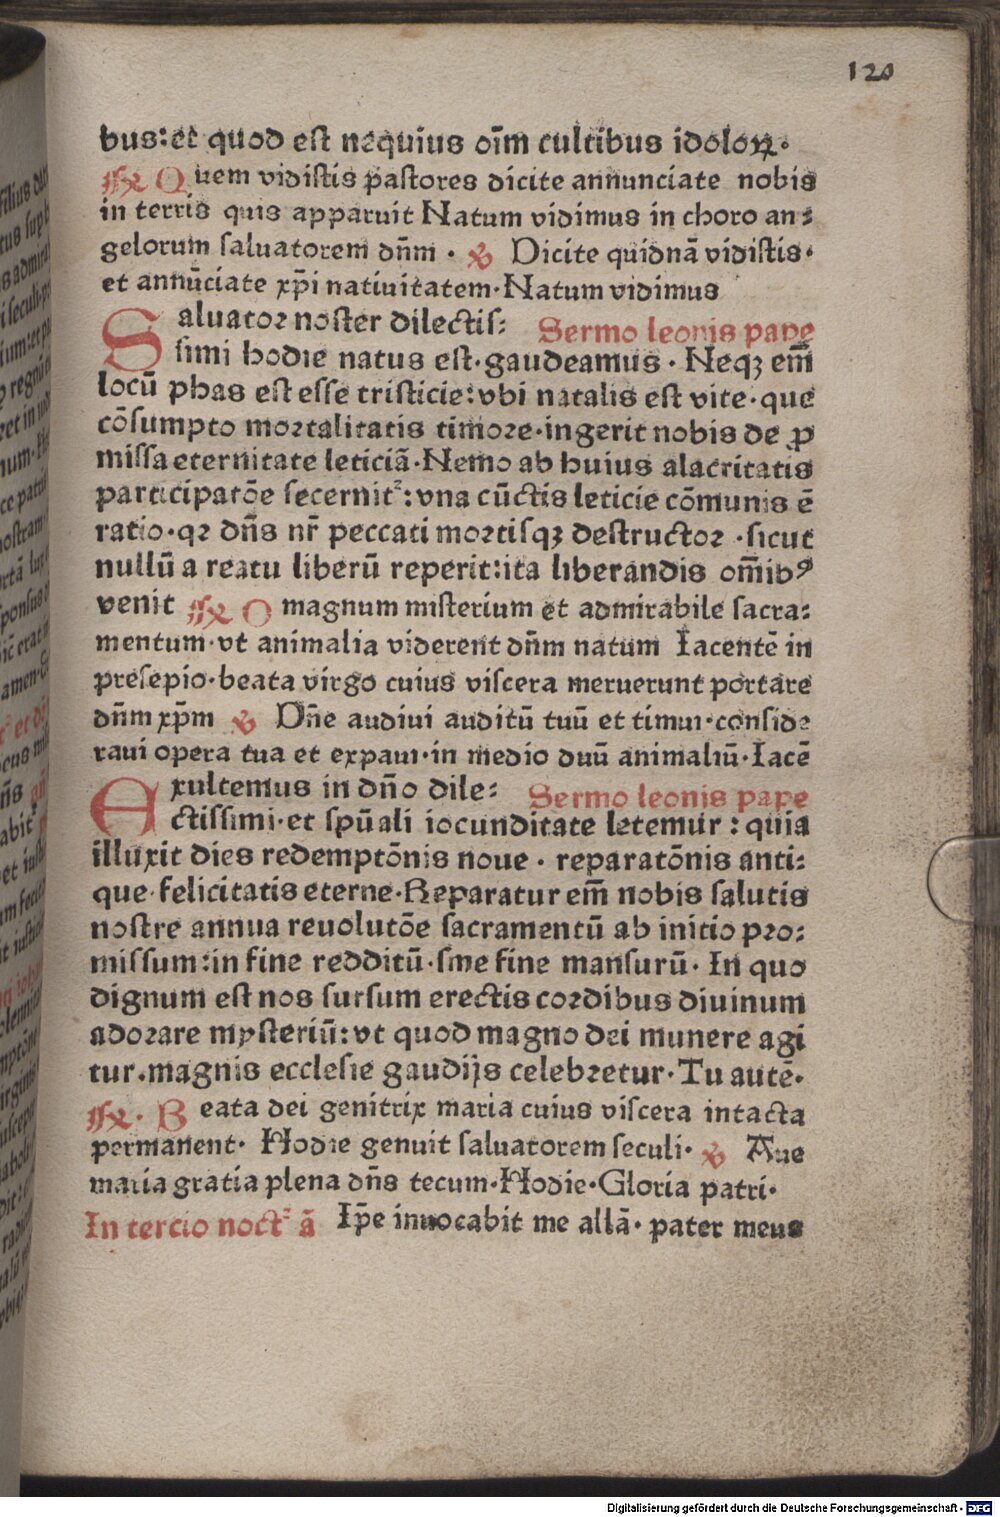 120
bus: et quod est nequius oīm cultibus idoloꝝ.
℟ Quem vidistis pastores dicite annunciate nobis
in terris quis apparuit Natum vidimus in choro an:
gelorum saluatorem dn̄m. ℣ Dicite quidnā vidistis.
et annūciate xp̄i natiuitatem. Natum vidimus
Saluator noster dilectis: Sermo leonis pape
simi hodie natus est. gaudeamus. Neqꝫ em̄
locū phas est esse tristicie: vbi natalis est vite. que
cōsumpto mortalitatis timore. ingerit nobis de ꝓ
missa eternitate leticiā. Nemo ab huius alacritatis
participatōe secernitꝰ: vna cūctis leticie cōmunis ē
ratio. qꝛ dn̄s nr̄ peccati mortisqꝫ destructor. sicut
nullū a reatu liberū reperit: ita liberandis om̄ibꝰ
venit ℟ O magnum misterium et admirabile sacra:
mentum. vt animalia viderent dn̄m natum Iacentē in
presepio. beata virgo cuius viscera meruerunt portare
dn̄m xp̄m ℣ Dn̄e audiui auditū tuū et timui. conside:
raui opera tua et expaui. in medio duū animaliū. Iacē
Exultemus in dn̄o dile: Sermo leonis pape
ctissimi. et spūali iocunditate letemur: quia
illuxit dies redemptōnis noue. reparatōnis anti:
que. felicitatis eterne. Reparatur em̄ nobis salutis
nostre annua reuolutōe sacramentū ab initio pro:
missum: in fine redditū. sine fine mansurū. In quo
dignum est nos sursum erectis cordibus diuinum
adorare mysteriū: vt quod magno dei munere agi
tur. magnis ecclesie gaudijs celebretur. Tu autē.
℟. Beata dei genitrix maria cuius viscera intacta
permanent. Hodie genuit saluatorem seculi. ℣ Aue
maria gratia plena dn̄s tecum. Hodie. Gloria patri.
In tercio noctꝰ ā Ip̄e inuocabit me allā. pater meus
Digitalisierung gefördert durch die Deutsche Forschungsgemeinschaft - DFG